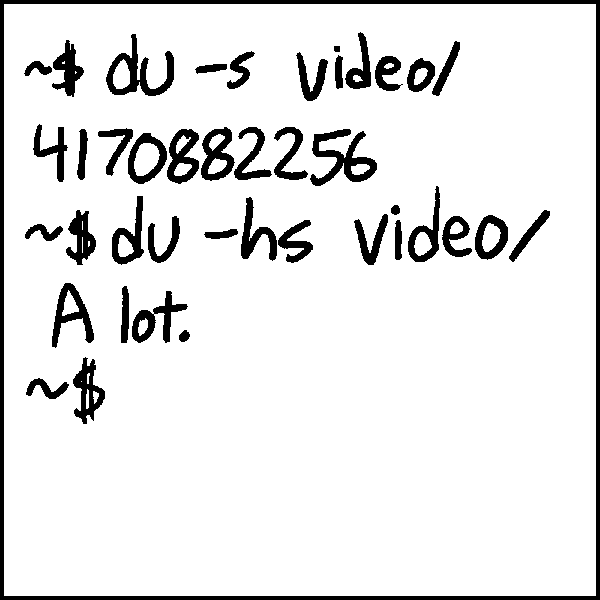 ~$ du -s video/
4170882256
~$ du -hs video/
A lot.
~$